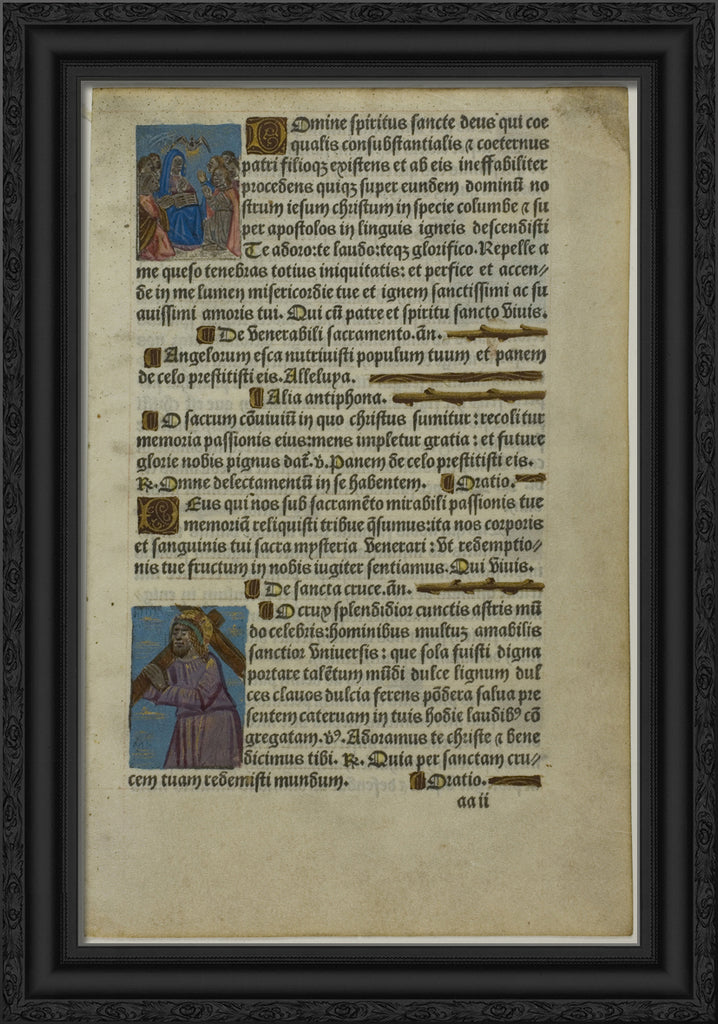 Domine spiritus sancte deus qui coe
qualis consubstantialis ⁊ coeternus
patri filioqꝫ existens et ab eis ineffabiliter
procedens quiqꝫ super eundem dominū no
strum iesum christum in specie columbe ⁊ su
per apostolos in linguis igneis descendisti
Te adoro:te laudo:teqꝫ glorifico. Repelle a
me queso tenebras totius iniquitatis: et perfice et accen//
de in me lumen misericordie tue et ignem sanctissimi ac su
auissimi amoris tui. Qui cū patre et spiritu sancto viuis.
De venerabili sacramento. añ.
Angelorum esca nutriuisti populum tuum et panem
de celo prestitisti eis. Alleluya.
Alia antiphona.
O sacrum cōuiuiū in quo christus sumitur: recolitur
memoria passionis eius:mens impletur gratia: et future
glorie nobis pignus dat̄. v̓. Panem de celo prestitisti eis.
℞. Omne delectamentū in se habentem. Oratio.
Deus qui nos sub sacramēto mirabili passionis tue
memoriā reliquisti tribue q̄sumus:ita nos corporis
et sanguinis tui sacra mysteria venerari: vt redemptio//
nis tue fructum in nobis iugiter sentiamus. Qui viuis.
De sancta cruce. añ.
O crux splendidior cunctis astris mū
do celebris:hominibus multuꝫ amabilis
sanctior vniuersis: que sola fuisti digna
portare talētum mūdi dulce lignum dul
ces clauos dulcia ferens pōdera salua pre
sentem cateruam in tuis hodie laudibꝰ cō
gregatam. vꝰ. Adoramus te christe ⁊ bene
dicimus tibi. ℞. Quia per sanctam cru//
cem tuam redemisti mundum. Oratio.
aa ii